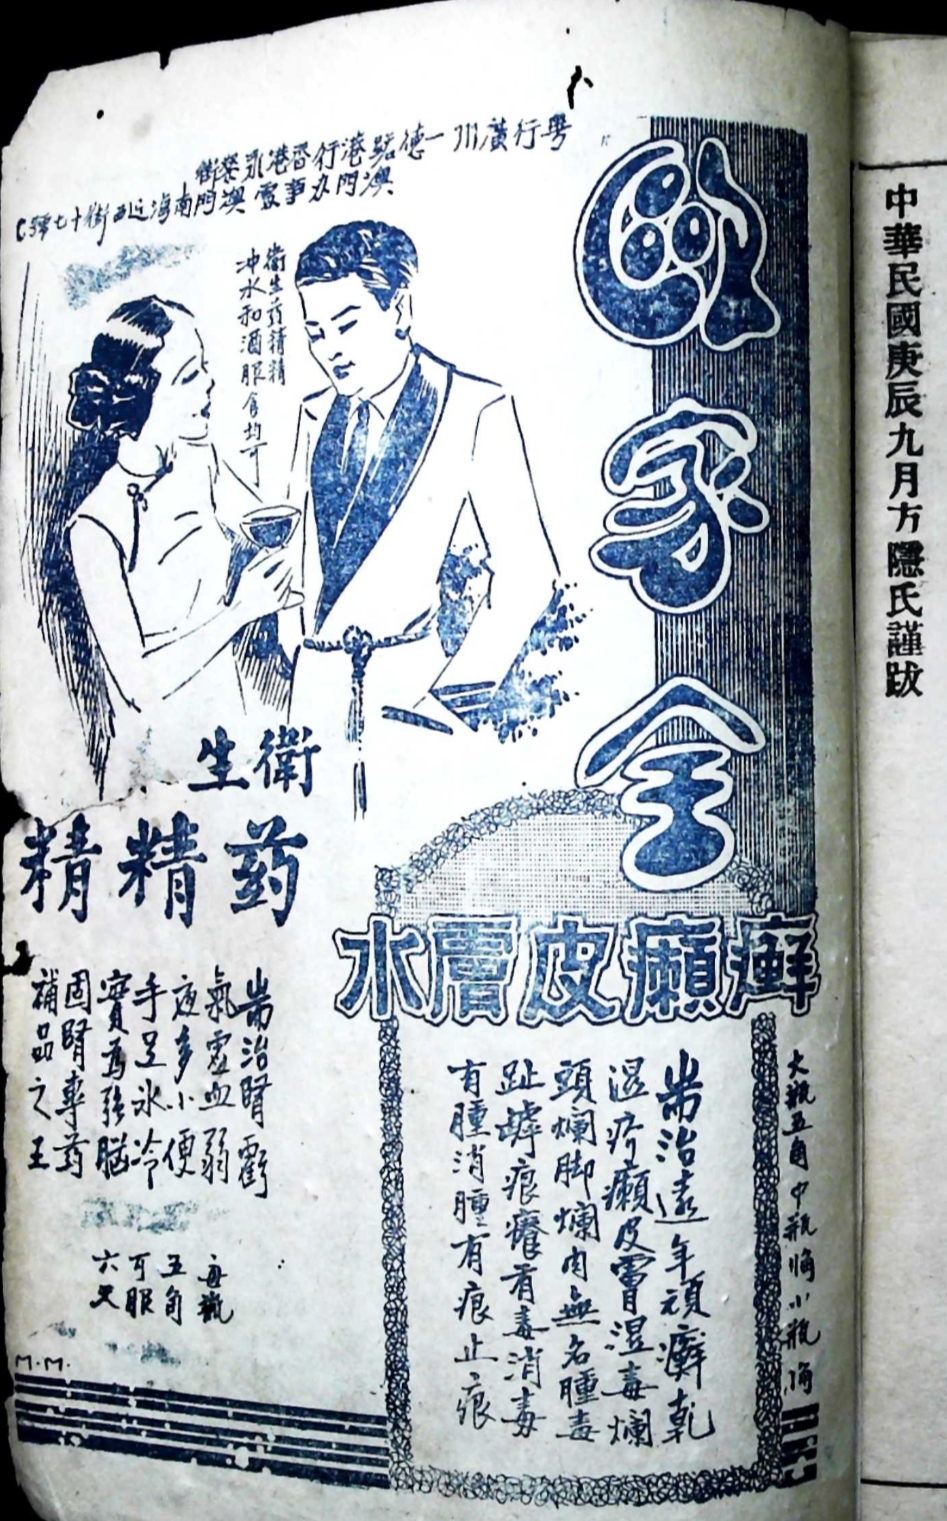 中華民國庚辰九月方隱氏謹跋
歐家全
粤行廣州一德路港行香港永樂街
澳門办事處澳門南海近西街十七號C
衛生葯精精
冲水和酒服食均可
衛生
葯精精
癬癩皮膚水
大瓶五角中瓶小瓶
耑治遠年頑癬乾
湿疥癩皮膚湿毒爛
頭爛脚爛肉無名腫毒
趾罅痕癢有毒消毒
有腫消腫有痕止痕
耑治腎虧
氣虛血弱
夜多小便
手足冰冷
實為強腦
固腎專葯
補品之王
每瓶
五角
可服
六
M.M.